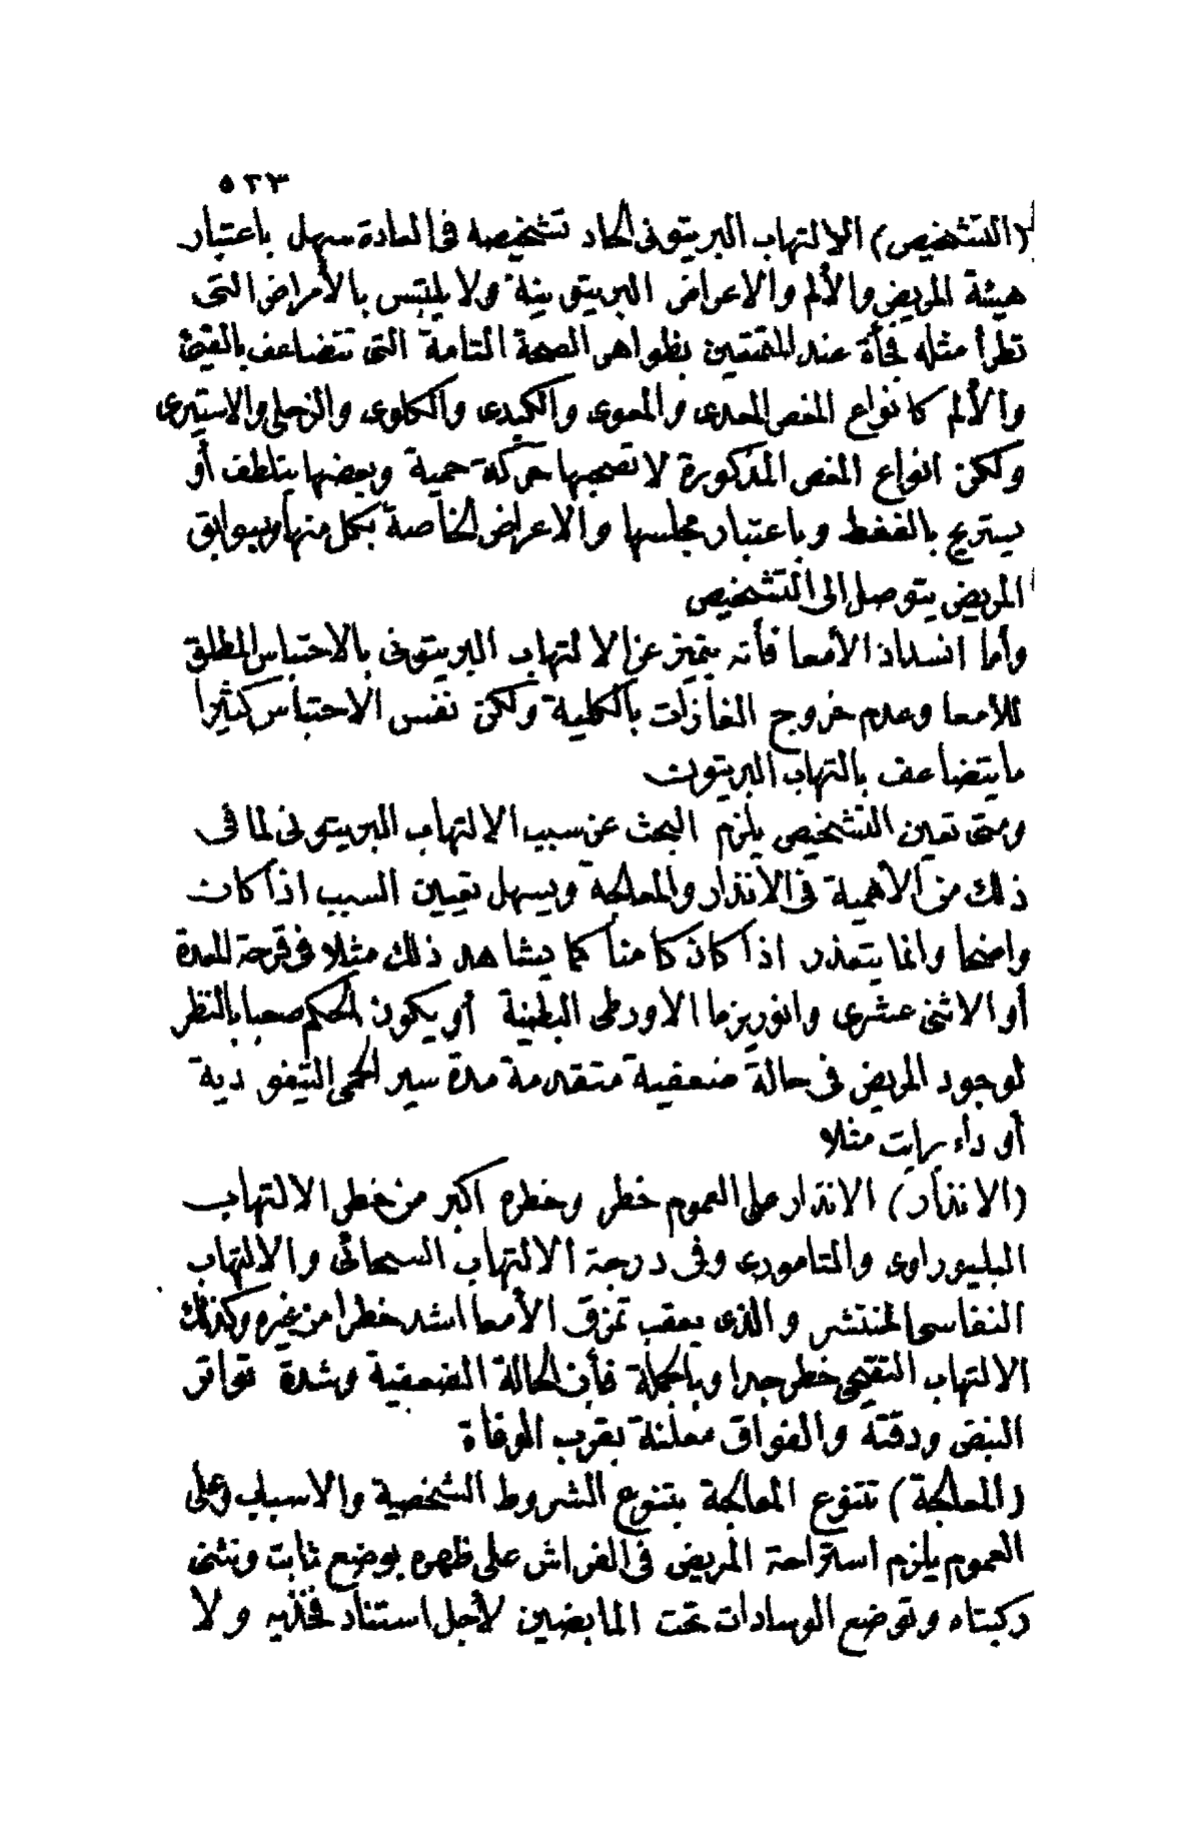 ٥٢٣
(التشخيص) الالتهاب البريتونى الحاد تشخيصه فى العادة سهل باعتبار
هيئة المريض والألم والاعراض البريتونية ولا يلتبس بالأمراض التى
تطرأ مثله فجأة عند المتمتعين بظواهر الصحة التامة التى تتضاعف بالقيئ
والألم كانواع المغص المعدى والمعوى والكبدى والكلوى والزحلى والاستيرى
ولكن انواع المغص المذكورة لا تصحبها حركة حمية وبعضها يتلطف أو
يستريح بالضغط وباعتبار مجلسها والاعراض الخاصة بكل منها وبسوابق
المريض يتوصل الى التشخيص
وأما انسداد الأمعا فأنه يتميز عن الالتهاب البريتونى بالاحتباس المطلق
للأمعا وعدم خروج الغازات بالكلية ولكن نفس الاحتباس كثيرا
ما يتضاعف بالتهاب البريتون
ومتى تعين التشخيص يلزم البحث عن سبب الالتهاب البريتونى لما فى
ذلك من الأهمية فى الأنذار والمعالجة ويسهل تعيين السبب اذا كان
واضحا وانما يتعذر اذا كان كامنا كما يشاهد ذلك مثلا فى قرحة المعدة
أو الاثنى عشرى وانوريزما الاورطى البطنية أو يكون الحكم صعبا بالنظر
لوجود المريض فى حالة ضعفية متقدمة مدة سير الحمى التيفودية
أو داء برايت مثلا
(الانذار) الانذار على العموم خطر وخطره اكبر من خطر الالتهاب
البليوراوى والتامورى وفى درجة الالتهاب السحائى والالتهاب
النفاسى المنتشر والذى يعقب تمزق الأمعا اشد خطرا من غيره وكذلك
الالتهاب التقيحى خطر جدا وبالجملة فأن الحالة الضعفية وشدة تواتر
النبض ودقته والفواق معلنة بقرب الوفاة
(المعالجة) تتنوع المعالجة بتنوع الشروط الشخصية والاسباب وعلى
العموم يلزم استراحة المريض فى الفراش على ظهره بوضع ثابت وتثنى
ركبتاه وتوضع الوسادات تحت المابضين لأجل استناد فخذيه ولا